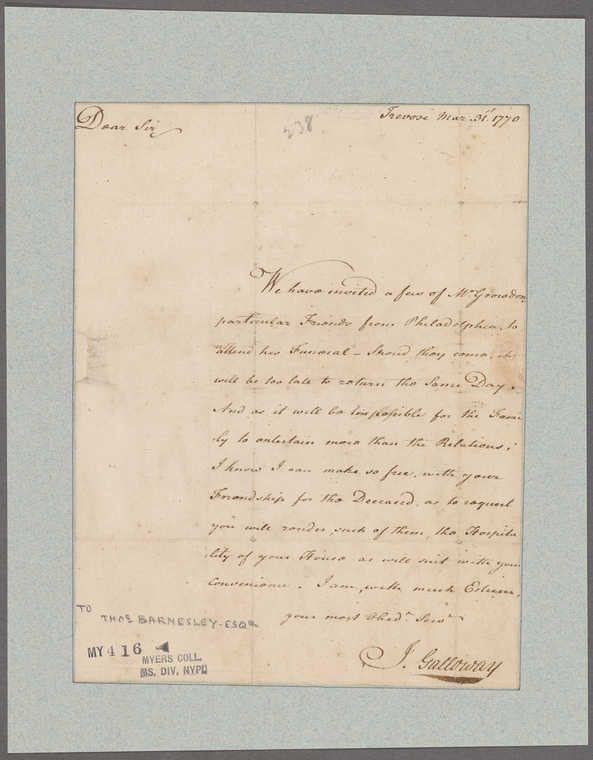 Dear Sir
Trevose Mar. 31st. 1770
238
We have invited a few of Mr. Growdon
particular Friends from Philadelphia, to
attend his Funeral – Shoud they come, it
will be too late to return the Same Day.
And as it will be impossible for the Fami
ly to entertain more than the Relations;
I know I can make so free, with your
Friendship for the Deceased, as to request
you will render such of them, the Hospita
lity of your House as will suit with your
Convenience. I am, with much Esteem,
your most Obedt. Servt
J. Galloway
TO
THOS BARNESLEY. ESQR
MY 416
MYERS COLL.
MS. DIV. NYPL